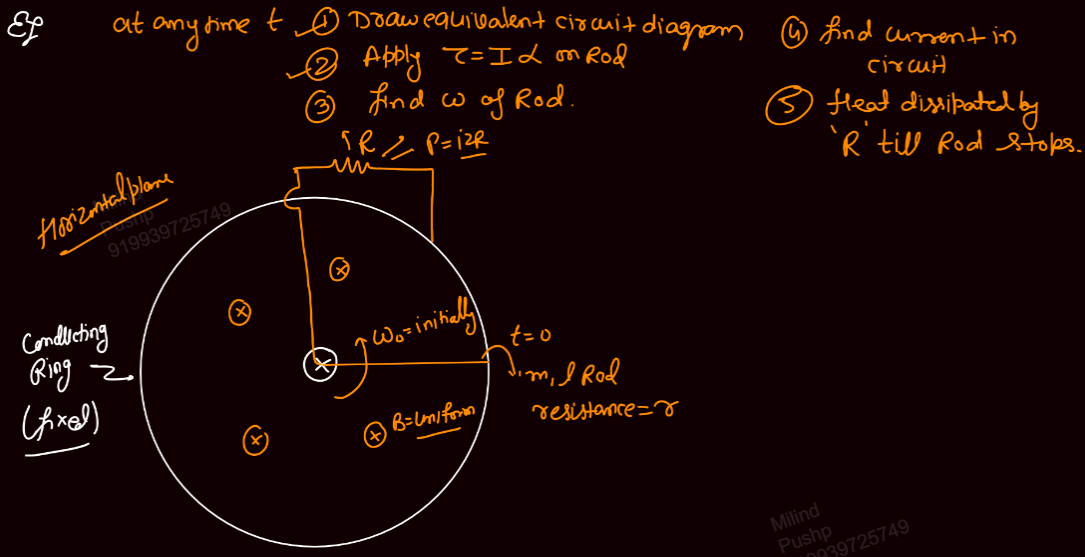 Ex at any time t ① Draw equivalent circuit diagram
② Apply τ = I α on Rod
③ find ω of Rod.
④ find current in
circuit
⑤ Heat dissipated by
'R' till Rod stops.
R P=i2R
Horizontal plane
Pushp
919939725749
ω₀=initially
t=0
m, l Rod
resistance=r
B=uniform
Conducting
Ring
(fixed)
Milind
Pushp
919939725749